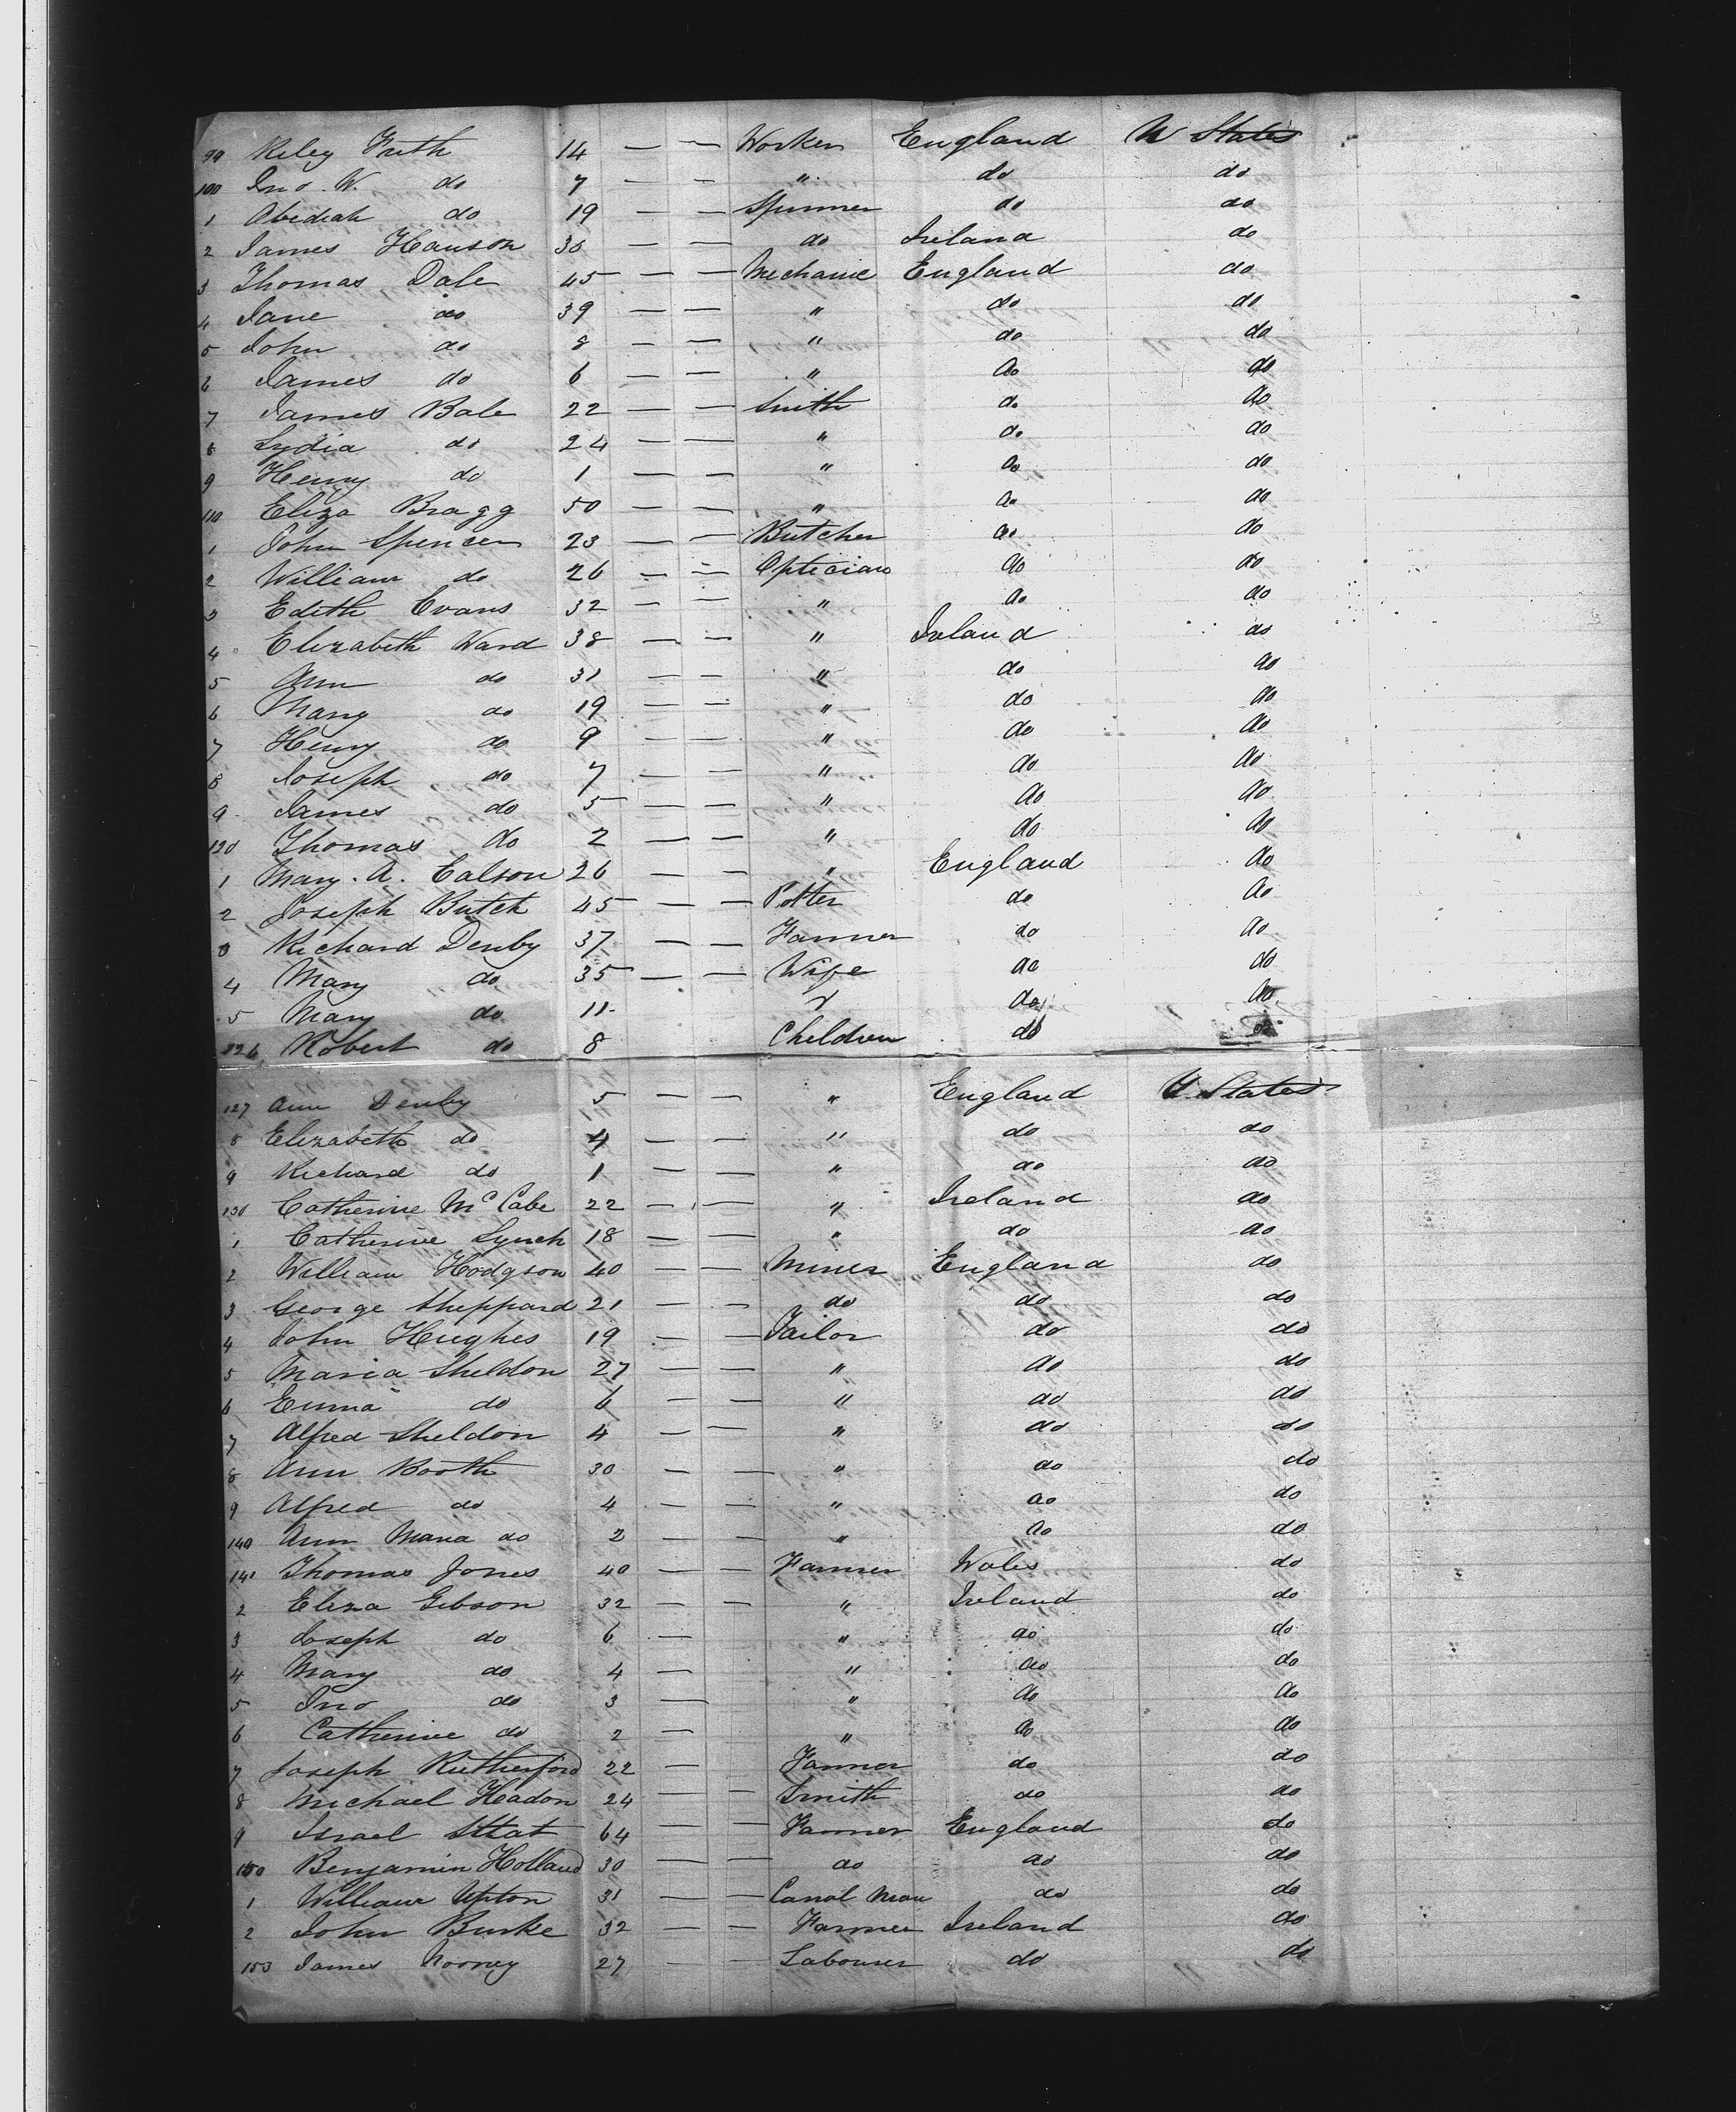 99 Riley Frith 14 — — Worker England U States
100 Jno. W. do 7 — — " do do
1 Obediah do 19 — — Spinner do do
2 James Hanson 30 — — do Ireland do
3 Thomas Dale 45 — — Mechanic England do
4 Jane do 39 — — " do do
5 John do 8 — — " do do
6 James do 6 — — " do do
7 James Bale 22 — — Smith do do
8 Lydia do 24 — — " do do
9 Henry do 1 — — " do do
110 Eliza Bragg 50 — — " do do
1 John Spencer 23 — — Butcher do do
2 William do 26 — — Optician do do
3 Edith Evans 32 — — " do do
4 Elizabeth Ward 38 — — " Ireland do
5 Ann do 31 — — " do do
6 Mary do 19 — — " do do
7 Henry do 9 — — " do do
8 Joseph do 7 — — " do do
9 James do 5 — — " do do
120 Thomas do 2 — — " do do
1 Mary. A. Calson 26 — — " England do
2 Joseph Butch 45 — — Potter do do
3 Richard Denby 37 — — Farmer do do
4 Mary do 35 — — Wife do do
5 Mary do 11 & do do
126 Robert do 8 Children do do
127 Ann Denby 5 — — " England U. States
8 Elizabeth do 4 — — " do do
9 Richard do 1 — — " do do
130 Catherine McCabe 22 — — " Ireland do
1 Catherine Lynch 18 — — " do do
2 William Hodgson 40 — — Miner England do
3 George Sheppard 21 — — do do do
4 John Hughes 19 — — Tailor do do
5 Maria Sheldon 27 — — " do do
6 Emma do 6 — — " do do
7 Alfred Sheldon 4 — — " do do
8 Ann Booth 30 — — " do do
9 Alfred do 4 — — " do do
140 Ann Maria do 2 — — " do do
141 Thomas Jones 40 — — Farmer Wales do
2 Eliza Gibson 32 — — " Ireland do
3 Joseph do 6 — " do do
4 Mary do 4 — " do do
5 Jno do 3 — " do do
6 Catherine do 2 — " do do
7 Joseph Rutherford 22 — Farmer do do
8 Michael Headon 24 — — Smith do do
9 Israel Sttat 64 — — Farmer England do
150 Benjamin Holland 30 — — do do do
1 William Upton 31 — — Canal Man do do
2 John Burke 32 — — Farmer Ireland do
153 James Rooney 27 — — Labourer do do